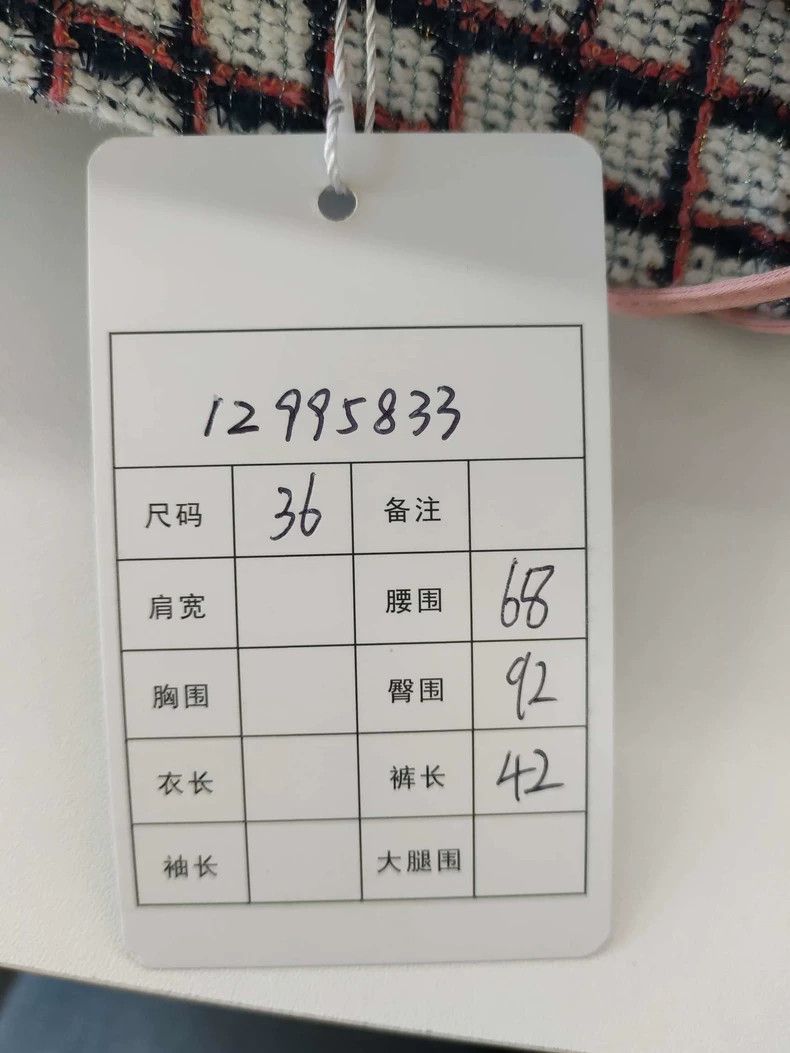 12995833
尺码 36 备注
肩宽 腰围 68
胸围 臀围 92
衣长 裤长 42
袖长 大腿围